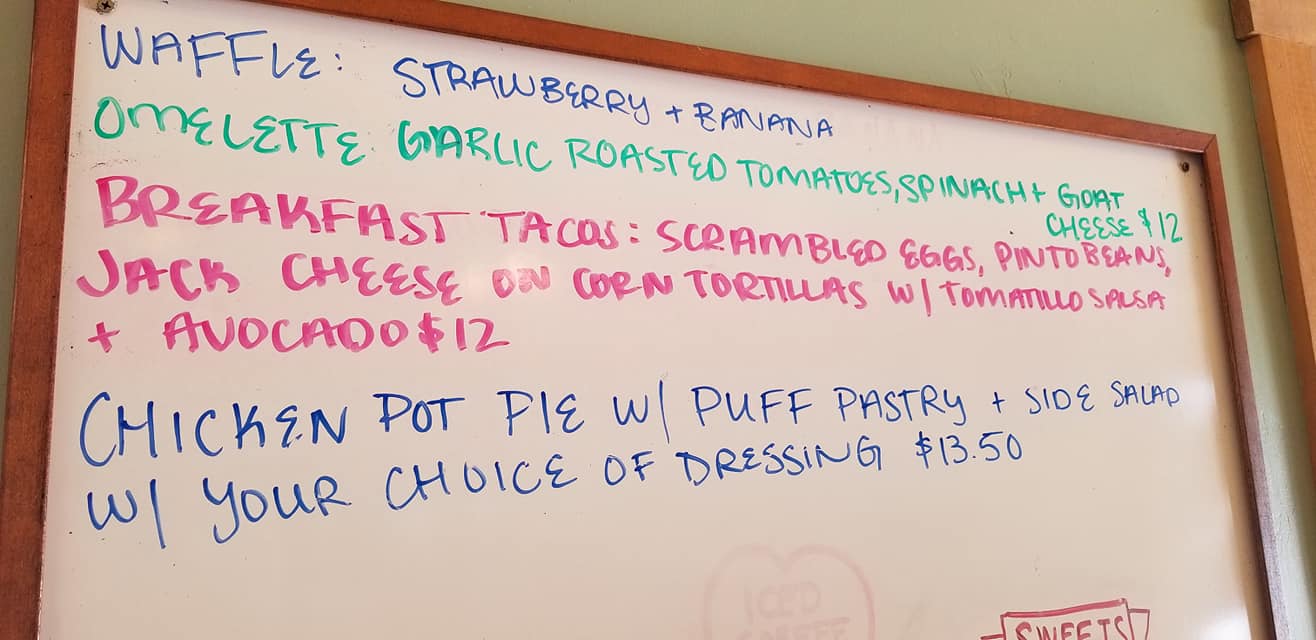 WAFFLE: STRAWBERRY + BANANA
OMELETTE GARLIC ROASTED TOMATOES, SPINACH + GOAT
CHEESE $12
BREAKFAST TACOS: SCRAMBLED EGGS, PINTO BEANS,
JACK CHEESE ON CORN TORTILLAS W/ TOMATILLO SALSA
+ AVOCADO $12
CHICKEN POT PIE W/ PUFF PASTRY + SIDE SALAD
W/ YOUR CHOICE OF DRESSING $13.50
ICED
COFFEE
SWEETS